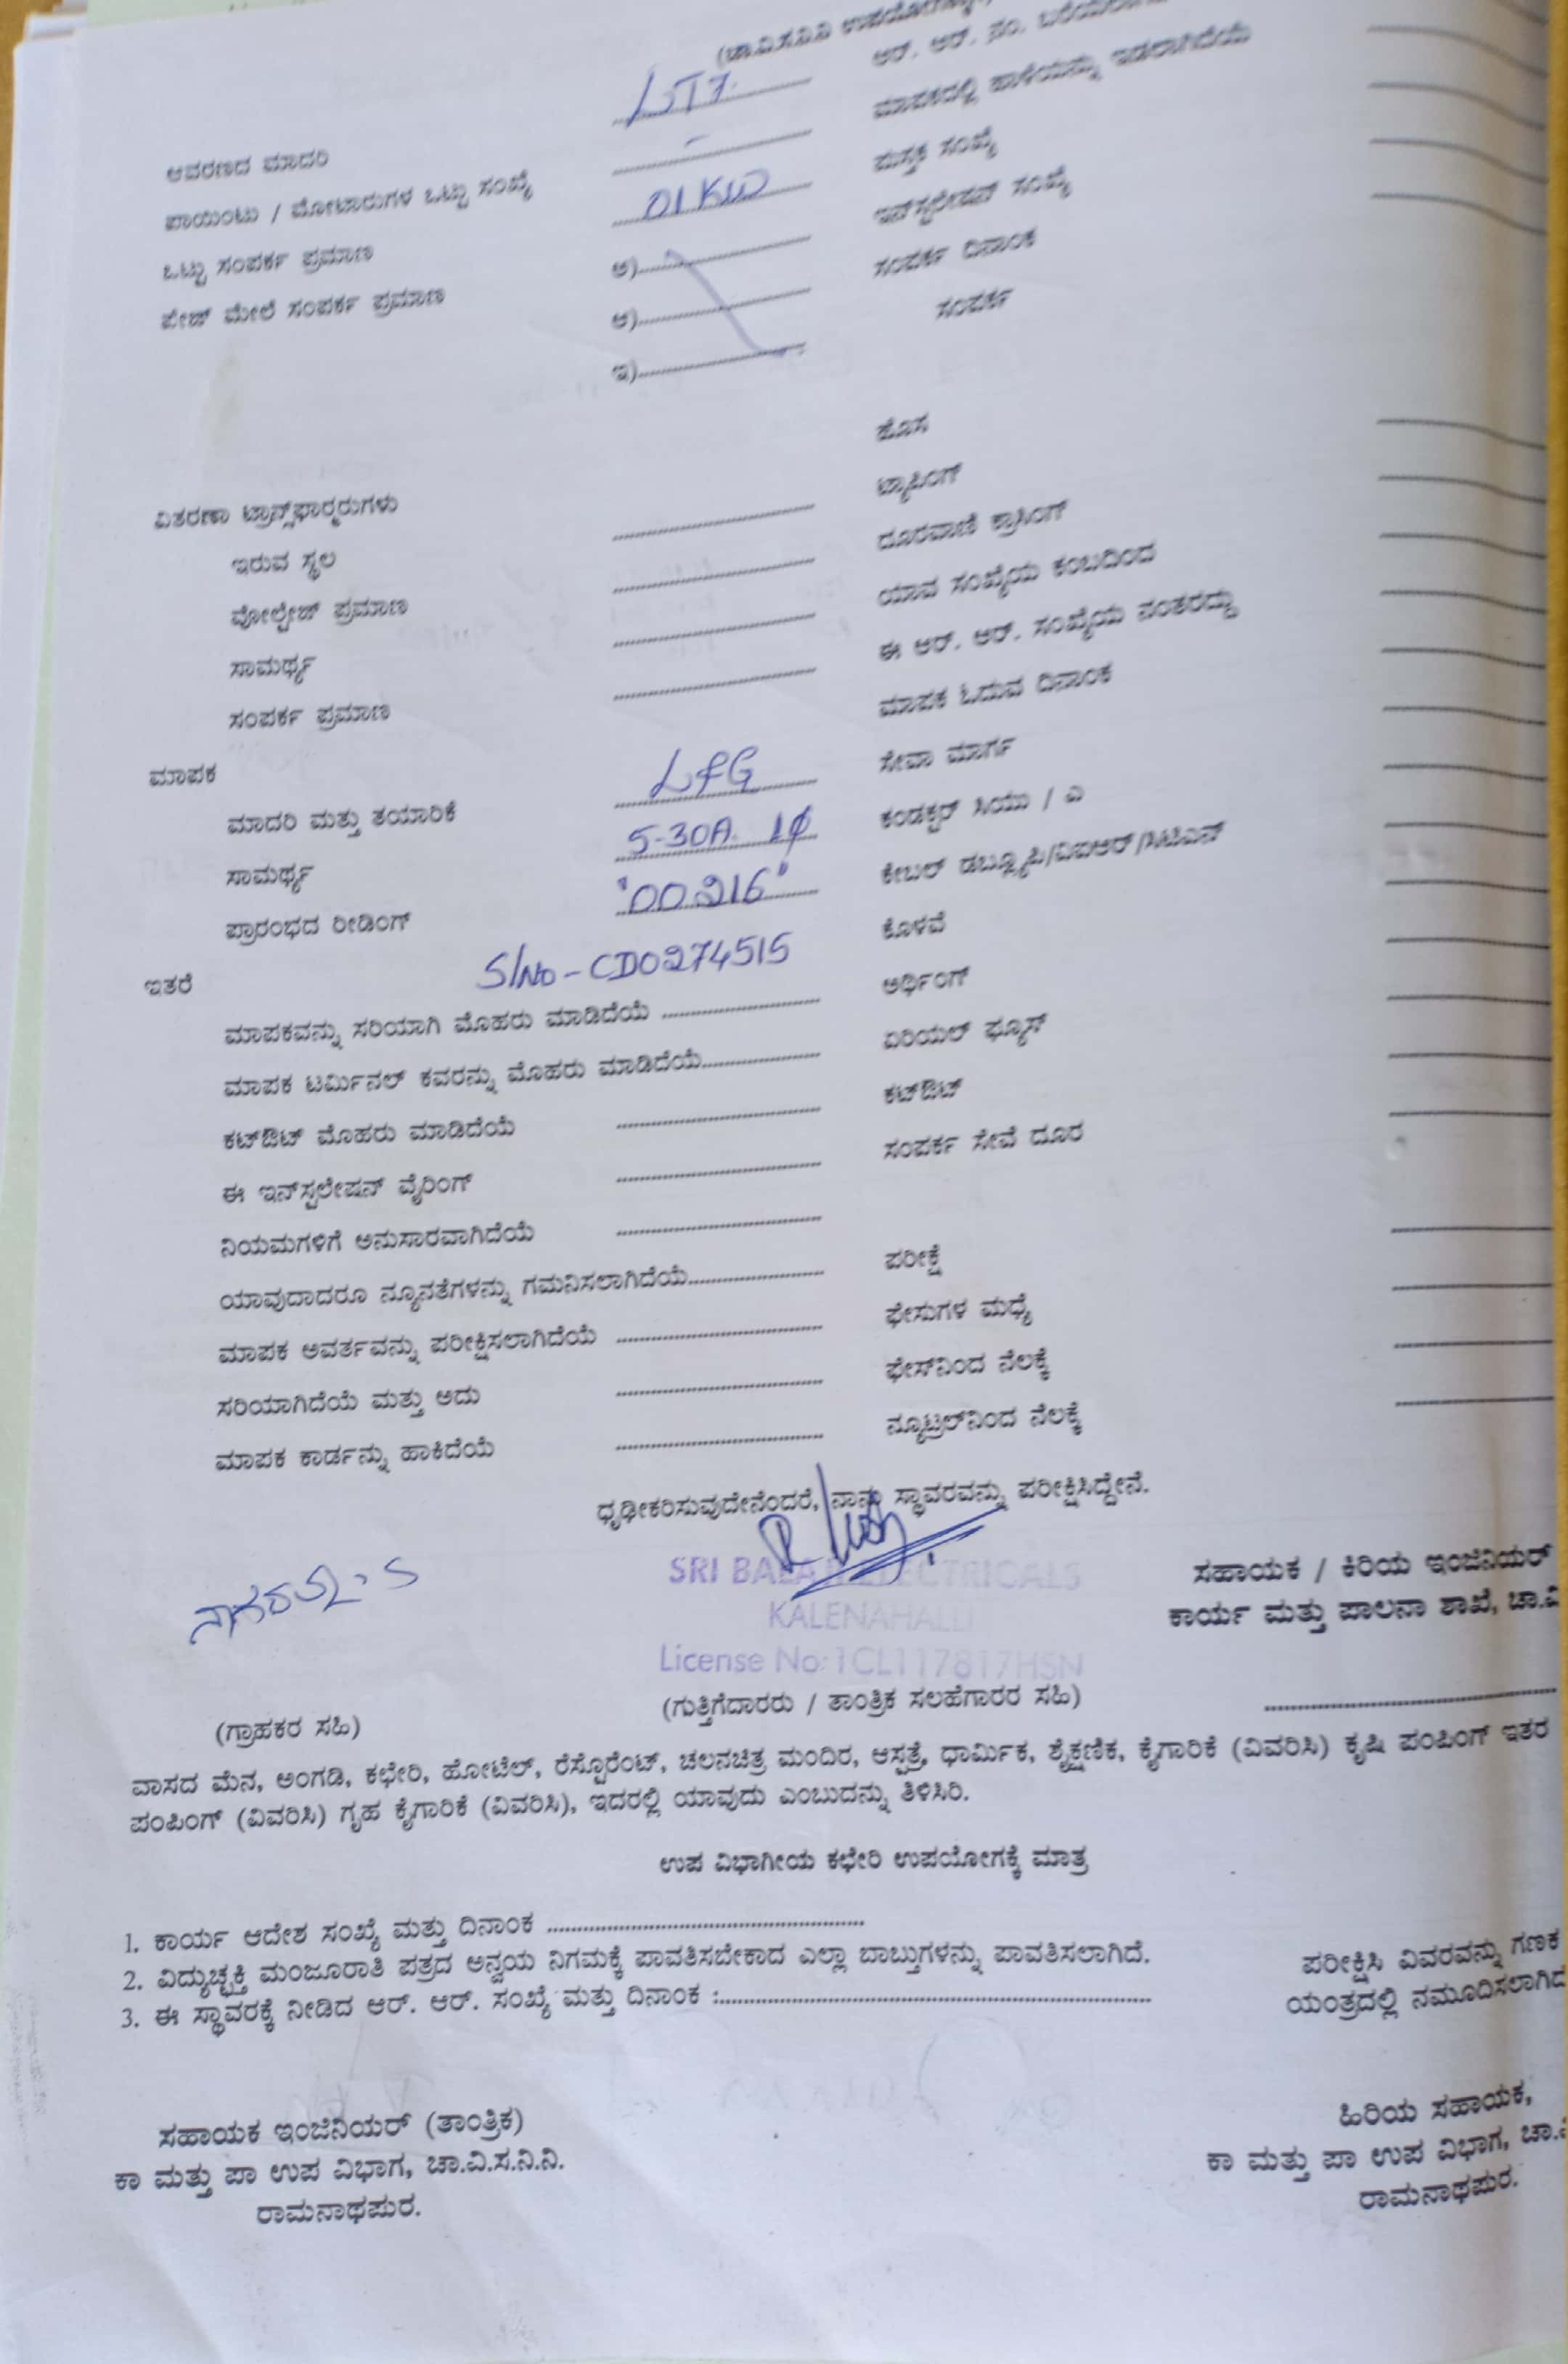 (ಚಾ.ವಿ.ಸ.ನಿ.ನಿ ಉಪಯೋಗಕ್ಕಾಗಿ)
ಆವರಣದ ಮಾದರಿ LT7.
ಪಾಯಿಂಟು / ಮೋಟಾರುಗಳ ಒಟ್ಟು ಸಂಖ್ಯೆ -
ಒಟ್ಟು ಸಂಪರ್ಕ ಪ್ರಮಾಣ 01KW
ಪೇಜ್ ಮೇಲೆ ಸಂಪರ್ಕ ಪ್ರಮಾಣ ಅ)
ಆ)
ಇ)
ವಿತರಣಾ ಟ್ರಾನ್ಸ್‌ಫಾರ್‍ಮರುಗಳು
ಇರುವ ಸ್ಥಲ
ವೋಲ್ಟೇಜ್ ಪ್ರಮಾಣ
ಸಾಮರ್ಥ್ಯ
ಸಂಪರ್ಕ ಪ್ರಮಾಣ
ಮಾಪಕ
ಮಾದರಿ ಮತ್ತು ತಯಾರಿಕೆ L&G
ಸಾಮರ್ಥ್ಯ 5-30A 1ϕ
ಪ್ರಾರಂಭದ ರೀಡಿಂಗ್ "00216"
ಇತರೆ S/No - CD0274515
ಮಾಪಕವನ್ನು ಸರಿಯಾಗಿ ಮೊಹರು ಮಾಡಿದೆಯೆ
ಮಾಪಕ ಟರ್ಮಿನಲ್ ಕವರನ್ನು ಮೊಹರು ಮಾಡಿದೆಯೆ
ಕಟ್‌ಔಟ್ ಮೊಹರು ಮಾಡಿದೆಯೆ
ಈ ಇನ್‌ಸ್ಪಲೇಷನ್ ವೈರಿಂಗ್
ನಿಯಮಗಳಿಗೆ ಅನುಸಾರವಾಗಿದೆಯೆ
ಯಾವುದಾದರೂ ನ್ಯೂನತೆಗಳನ್ನು ಗಮನಿಸಲಾಗಿದೆಯೆ
ಮಾಪಕ ಅವರ್ತವನ್ನು ಪರೀಕ್ಷಿಸಲಾಗಿದೆಯೆ
ಸರಿಯಾಗಿದೆಯೆ ಮತ್ತು ಅದು
ಮಾಪಕ ಕಾರ್ಡನ್ನು ಹಾಕಿದೆಯೆ
ಆರ್. ಆರ್. ನಂ.
ಮಾಪಕದಲ್ಲಿ ಹಾಳೆಯನ್ನು ಇಡಲಾಗಿದೆಯೆ
ಪುಸ್ತಕ ಸಂಖ್ಯೆ
ಇನ್‌ಸ್ಪಲೇಷನ್ ಸಂಖ್ಯೆ
ಸಂಪರ್ಕ ದಿನಾಂಕ
ಸಂಪರ್ಕ
ಹೊಸ
ಟ್ಯಾಪಿಂಗ್
ದೂರವಾಣಿ ಕ್ರಾಸಿಂಗ್
ಯಾವ ಸಂಖ್ಯೆಯ ಕಂಬದಿಂದ
ಈ ಆರ್. ಆರ್. ಸಂಖ್ಯೆಯ ನಂತರದ್ದು
ಮಾಪಕ ಓದುವ ದಿನಾಂಕ
ಸೇವಾ ಮಾರ್ಗ
ಕಂಡಕ್ಟರ್ ಸಿಯು / ಎ
ಕೇಬಲ್ ಡಬ್ಲ್ಯೂಪಿ/ವಿಐಆರ್/ಸಿಟಿಎಸ್
ಕೊಳವೆ
ಅರ್ಥಿಂಗ್
ಏರಿಯಲ್ ಫ್ಯೂಸ್
ಕಟ್‌ಔಟ್
ಸಂಪರ್ಕ ಸೇವೆ ದೂರ
ಪರೀಕ್ಷೆ
ಫೇಸುಗಳ ಮಧ್ಯೆ
ಫೇಸ್‌ನಿಂದ ನೆಲಕ್ಕೆ
ನ್ಯೂಟ್ರಲ್‌ನಿಂದ ನೆಲಕ್ಕೆ
ಧೃಢೀಕರಿಸುವುದೇನೆಂದರೆ, ನಾನು ಸ್ಥಾವರವನ್ನು ಪರೀಕ್ಷಿಸಿದ್ದೇನೆ.
SRI BALAJI ELECTRICALS
KALENAHALLI
License No:1CL117817HSN
ಸಹಾಯಕ / ಕಿರಿಯ ಇಂಜಿನಿಯರ್
ಕಾರ್ಯ ಮತ್ತು ಪಾಲನಾ ಶಾಖೆ, ಚಾ.ವಿ
(ಗ್ರಾಹಕರ ಸಹಿ)
(ಗುತ್ತಿಗೆದಾರರು / ತಾಂತ್ರಿಕ ಸಲಹೆಗಾರರ ಸಹಿ)
ವಾಸದ ಮೆನ, ಅಂಗಡಿ, ಕಛೇರಿ, ಹೋಟೆಲ್, ರೆಸ್ಟೊರೆಂಟ್, ಚಲನಚಿತ್ರ ಮಂದಿರ, ಆಸ್ಪತ್ರೆ, ಧಾರ್ಮಿಕ, ಶೈಕ್ಷಣಿಕ, ಕೈಗಾರಿಕೆ (ವಿವರಿಸಿ) ಕೃಷಿ ಪಂಪಿಂಗ್ ಇತರ
ಪಂಪಿಂಗ್ (ವಿವರಿಸಿ) ಗೃಹ ಕೈಗಾರಿಕೆ (ವಿವರಿಸಿ), ಇದರಲ್ಲಿ ಯಾವುದು ಎಂಬುದನ್ನು ತಿಳಿಸಿರಿ.
ಉಪ ವಿಭಾಗೀಯ ಕಛೇರಿ ಉಪಯೋಗಕ್ಕೆ ಮಾತ್ರ
1. ಕಾರ್ಯ ಆದೇಶ ಸಂಖ್ಯೆ ಮತ್ತು ದಿನಾಂಕ
2. ವಿದ್ಯುಚ್ಛಕ್ತಿ ಮಂಜೂರಾತಿ ಪತ್ರದ ಅನ್ವಯ ನಿಗಮಕ್ಕೆ ಪಾವತಿಸಬೇಕಾದ ಎಲ್ಲಾ ಬಾಬ್ತುಗಳನ್ನು ಪಾವತಿಸಲಾಗಿದೆ.
3. ಈ ಸ್ಥಾವರಕ್ಕೆ ನೀಡಿದ ಆರ್. ಆರ್. ಸಂಖ್ಯೆ ಮತ್ತು ದಿನಾಂಕ :
ಪರೀಕ್ಷಿಸಿ ವಿವರವನ್ನು ಗಣಕ
ಯಂತ್ರದಲ್ಲಿ ನಮೂದಿಸಲಾಗಿದ
ಸಹಾಯಕ ಇಂಜಿನಿಯರ್ (ತಾಂತ್ರಿಕ)
ಕಾ ಮತ್ತು ಪಾ ಉಪ ವಿಭಾಗ, ಚಾ.ವಿ.ಸ.ನಿ.ನಿ.
ರಾಮನಾಥಪುರ.
ಹಿರಿಯ ಸಹಾಯಕ,
ಕಾ ಮತ್ತು ಪಾ ಉಪ ವಿಭಾಗ, ಚಾ.ವಿ
ರಾಮನಾಥಪುರ.